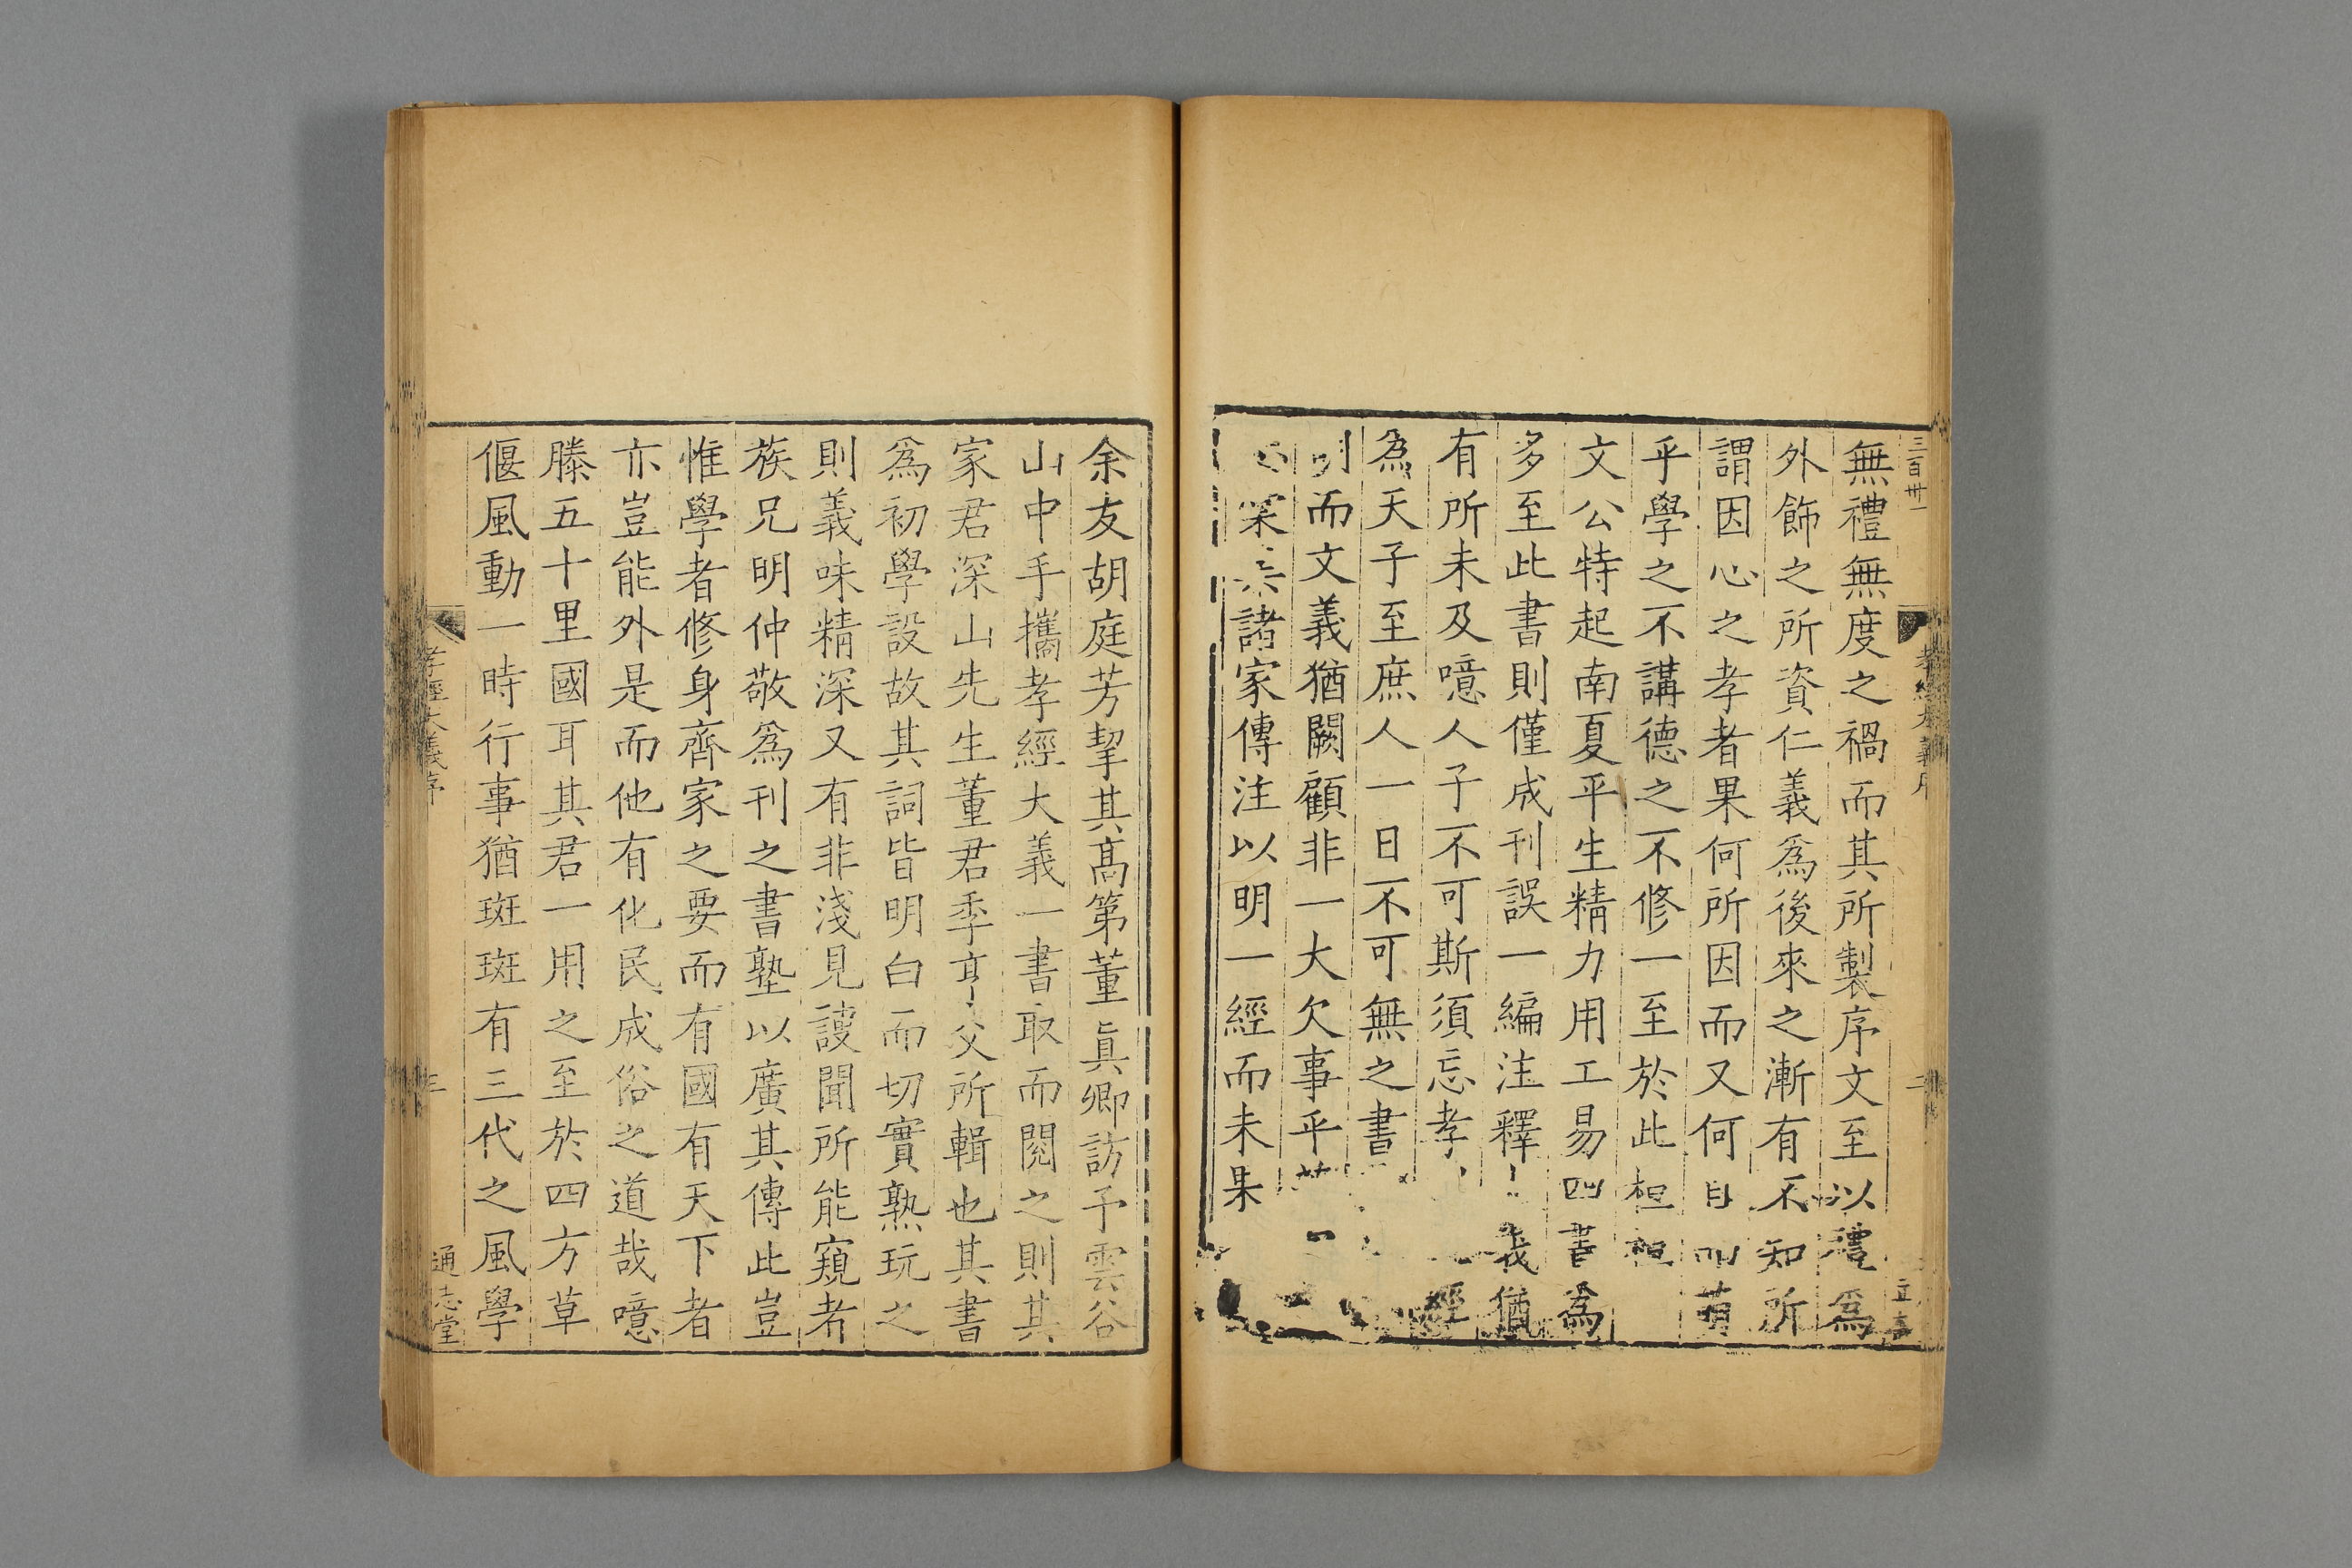 三百卅一
孝經大義序
二
無禮無度之禍而其所製序文至以禮為
外飾之所資仁義為後來之漸有不知所
謂因心之孝者果何所因而又何
乎學之不講德之不修一至於此
文公特起南夏平生精力用工易四書為
多至此書則僅成刊誤一編注釋義猶
有所未及噫人子不可斯須忘孝經
為天子至庶人一日不可無之書
而文義猶闕顧非一大欠事乎
諸家傳注以明一經而未果
余友胡庭芳挈其高第董真卿訪予雲谷
山中手攜孝經大義一書取而閱之則其
家君深山先生董君季亨父所輯也其書
為初學設故其詞皆明白而切實熟玩之
則義味精深又有非淺見謏聞所能窺者
族兄明仲敬為刊之書塾以廣其傳此豈
惟學者修身齊家之要而有國有天下者
亦豈能外是而他有化民成俗之道哉噫
滕五十里國耳其君一用之至於四方草
偃風動一時行事猶斑斑有三代之風學
孝經大義序
三
通志堂